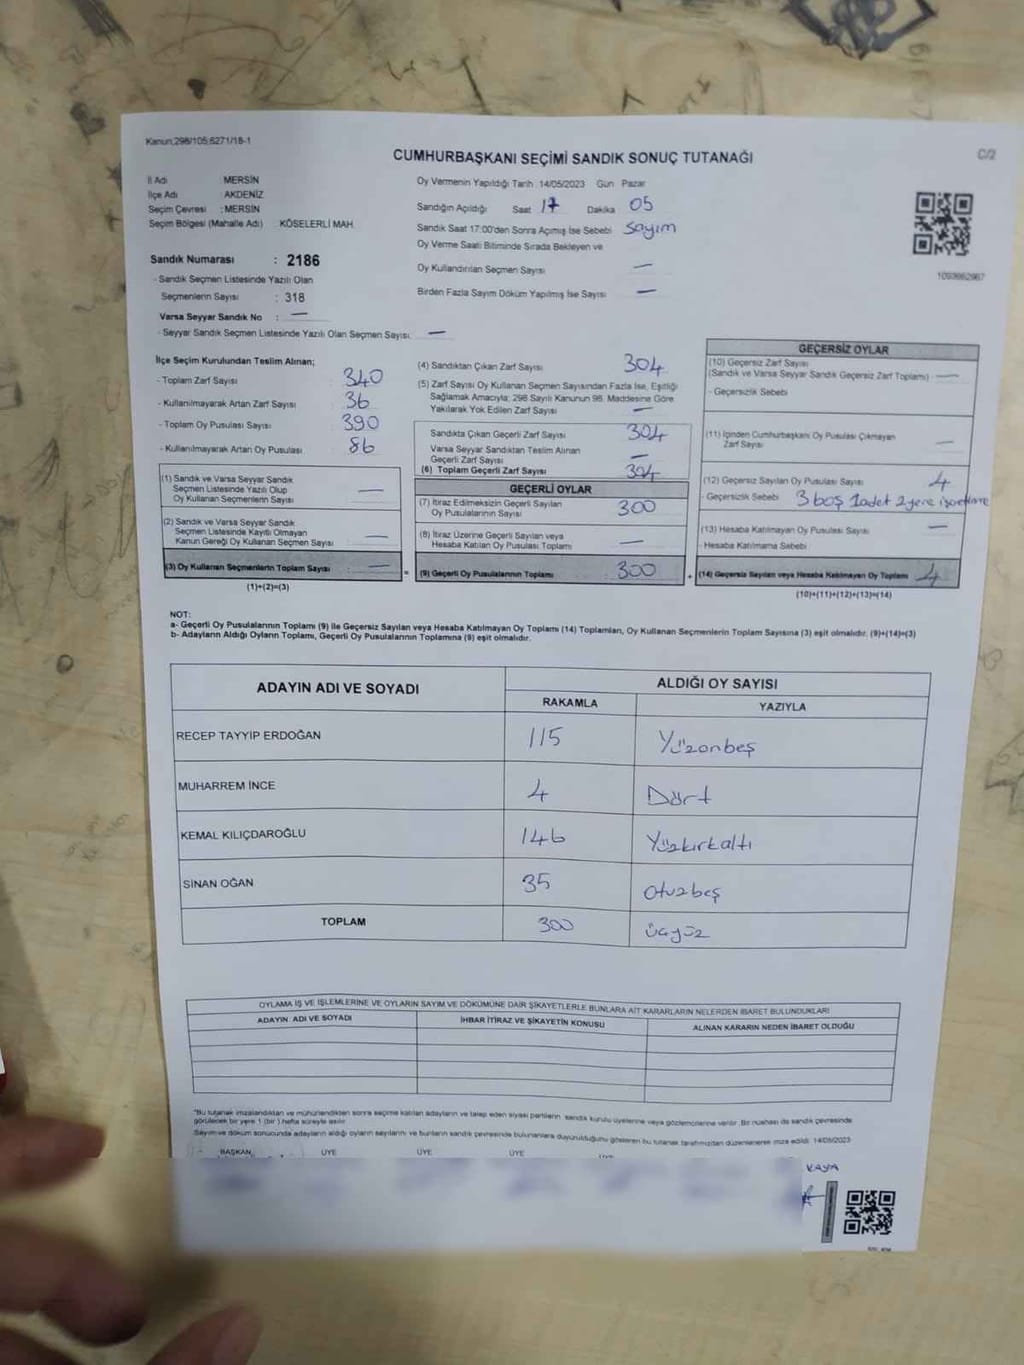 Kanun;298/105;6271/18-1
CUMHURBAŞKANI SEÇİMİ SANDIK SONUÇ TUTANAĞI
C/2
İl Adı : MERSİN
İlçe Adı : AKDENİZ
Seçim Çevresi : MERSİN
Seçim Bölgesi (Mahalle Adı) : KÖSELERLİ MAH.
Oy Vermenin Yapıldığı Tarih 14/05/2023 Gün Pazar
Sandığın Açıldığı Saat 17 Dakika 05
Sandık Saat 17:00'den Sonra Açımış İse Sebebi Sayım
Oy Verme Saati Bitiminde Sırada Bekleyen ve
Oy Kullandırılan Seçmen Sayısı —
Birden Fazla Sayım Döküm Yapılmış İse Sayısı —
1093662967
Sandık Numarası : 2186
- Sandık Seçmen Listesinde Yazılı Olan
Seçmenlerin Sayısı : 318
Varsa Seyyar Sandık No : —
- Seyyar Sandık Seçmen Listesinde Yazılı Olan Seçmen Sayısı: —
İlçe Seçim Kurulundan Teslim Alınan;
- Toplam Zarf Sayısı 340
- Kullanılmayarak Artan Zarf Sayısı 36
- Toplam Oy Pusulası Sayısı 390
- Kullanılmayarak Artan Oy Pusulası 86
(1) Sandık ve Varsa Seyyar Sandık
Seçmen Listesinde Yazılı Olup
Oy Kullanan Seçmenlerin Sayısı —
(2) Sandık ve Varsa Seyyar Sandık
Seçmen Listesinde Kayıtlı Olmayan
Kanun Gereği Oy Kullanan Seçmen Sayısı —
(3) Oy Kullanan Seçmenlerin Toplam Sayısı —
(1)+(2)=(3)
=
(4) Sandıktan Çıkan Zarf Sayısı 304
(5) Zarf Sayısı Oy Kullanan Seçmen Sayısından Fazla İse, Eşitliği
Sağlamak Amacıyla; 298 Sayılı Kanunun 98. Maddesine Göre
Yakılarak Yok Edilen Zarf Sayısı —
Sandıkta Çıkan Geçerli Zarf Sayısı 304
Varsa Seyyar Sandıktan Teslim Alınan
Geçerli Zarf Sayısı —
(6) Toplam Geçerli Zarf Sayısı 304
GEÇERLİ OYLAR
(7) İtiraz Edilmeksizin Geçerli Sayılan
Oy Pusulalarının Sayısı 300
(8) İtiraz Üzerine Geçerli Sayılan veya
Hesaba Katılan Oy Pusulası Toplamı —
(9) Geçerli Oy Pusulalarının Toplamı 300
+
GEÇERSİZ OYLAR
(10) Geçersiz Zarf Sayısı
(Sandık ve Varsa Seyyar Sandık Geçersiz Zarf Toplamı) —
- Geçersizlik Sebebi
(11) İçinden Cumhurbaşkanı Oy Pusulası Çıkmayan
Zarf Sayısı —
(12) Geçersiz Sayılan Oy Pusulası Sayısı 4
- Geçersizlik Sebebi 3 boş 1 adet 2 yere işaretleme
(13) Hesaba Katılmayan Oy Pusulası Sayısı —
- Hesaba Katılmama Sebebi
(14) Geçersiz Sayılan veya Hesaba Katılmayan Oy Toplamı 4
(10)+(11)+(12)+(13)=(14)
NOT:
a- Geçerli Oy Pusulalarının Toplamı (9) ile Geçersiz Sayılan veya Hesaba Katılmayan Oy Toplamı (14) Toplamları, Oy Kullanan Seçmenlerin Toplam Sayısına (3) eşit olmalıdır. (9)+(14)=(3)
b- Adayların Aldığı Oyların Toplamı, Geçerli Oy Pusulalarının Toplamına (9) eşit olmalıdır.
ADAYIN ADI VE SOYADI
ALDIĞI OY SAYISI
RAKAMLA YAZIYLA
RECEP TAYYİP ERDOĞAN 115 Yüzonbeş
MUHARREM İNCE 4 Dört
KEMAL KILIÇDAROĞLU 146 Yüzkırkaltı
SİNAN OĞAN 35 Otuzbeş
TOPLAM 300 üçyüz
OYLAMA İŞ VE İŞLEMLERİNE VE OYLARIN SAYIM VE DÖKÜMÜNE DAİR ŞİKAYETLERLE BUNLARA AİT KARARLARIN NELERDEN İBARET BULUNDUKLARI
ADAYIN ADI VE SOYADI İHBAR İTİRAZ VE ŞİKAYETİN KONUSU ALINAN KARARIN NEDEN İBARET OLDUĞU
*Bu tutanak imzalandıktan ve mühürlendikten sonra seçime katılan adayların ve talep eden siyasi partilerin sandık kurulu üyelerine veya gözlemcilerine verilir. Bir nüshası da sandık çevresinde
görülecek bir yere 1 (bir) hafta süreyle asılır.
Sayım ve döküm sonucunda adayların aldığı oyların sayılarını ve bunların sandık çevresinde bulunanlara duyurulduğunu gösteren bu tutanak tarafımızdan düzenlenerek imza edildi. 14/05/2023
BAŞKAN ÜYE ÜYE ÜYE
KAYA